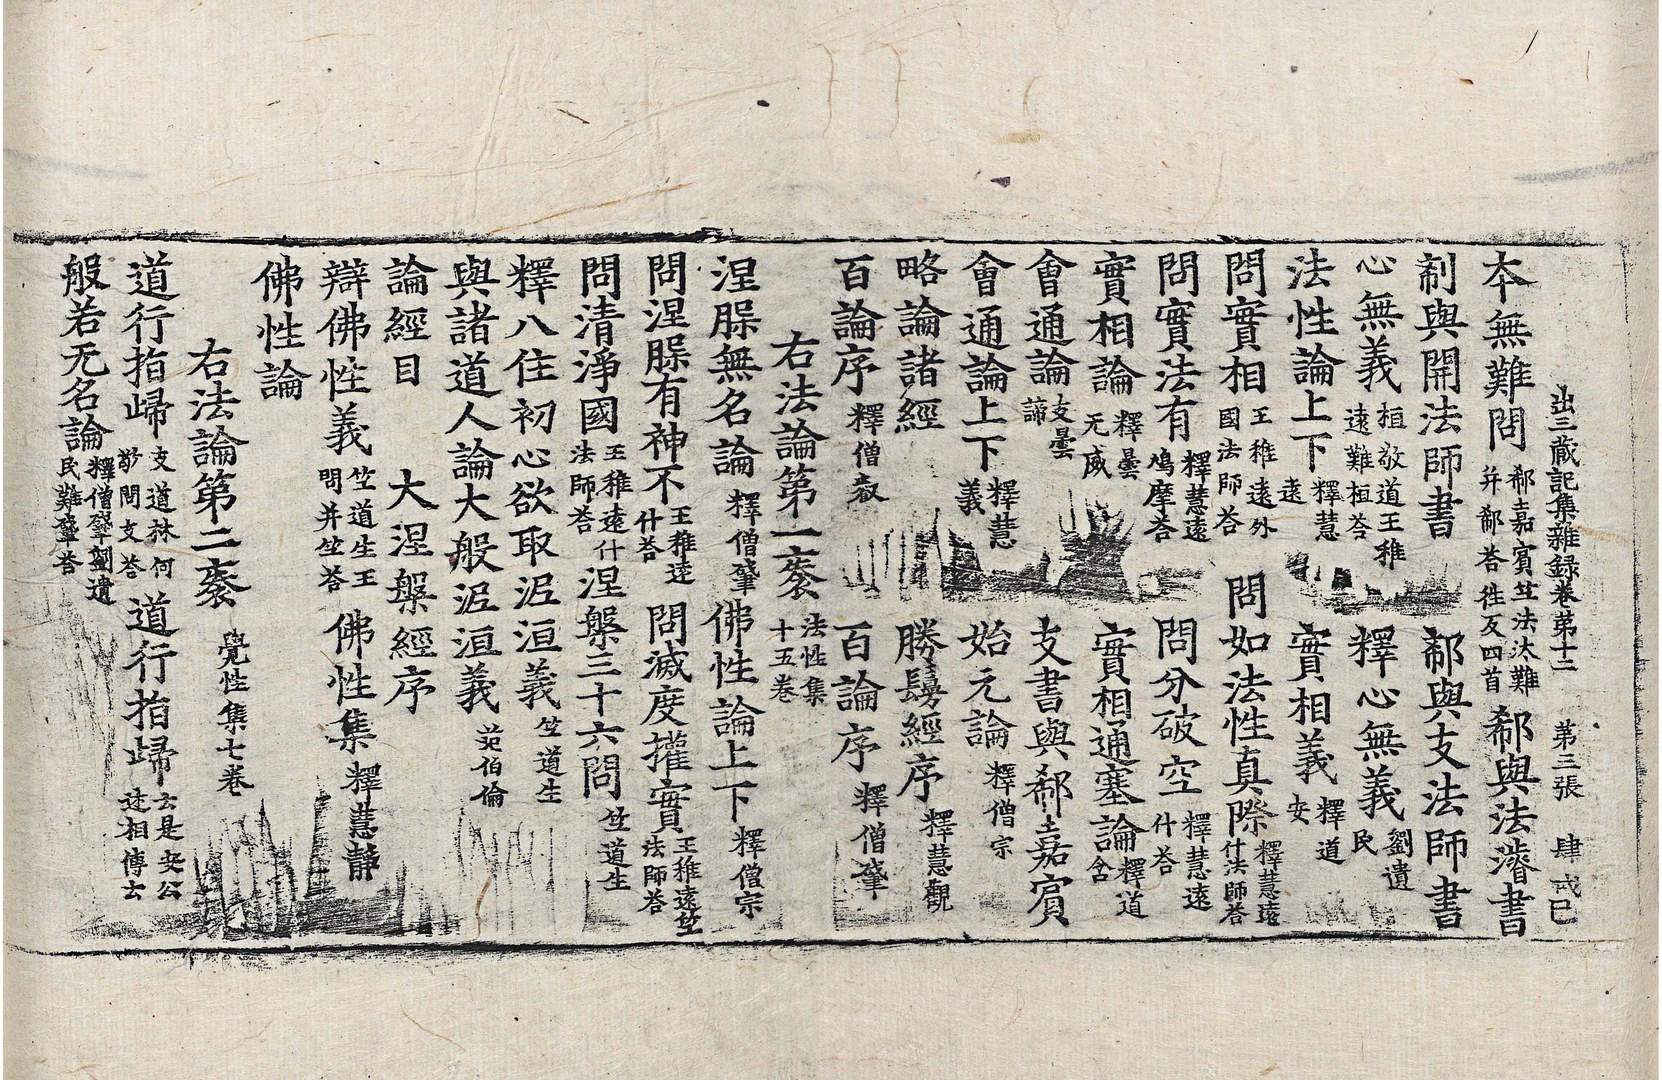 出三蔵記集雜録卷第十二　第三張　肆戎巳
本無難問郗嘉賓竺法汰難并郗荅徃反四首　郗與法濬書
郗與開法師書　郗與支法師書
心無義桓敬道王稚遠難桓荅　釋心無義劉遺民
法性論上下釋慧遠　實相義釋道安
問實相王稚遠外國法師荅　問如法性真際釋慧遠什法師荅
問實法有釋慧遠鳩摩荅　問分破空釋慧遠什荅
實相論釋曇无威　實相通塞論釋道含
會通論支曇諦　支書與郗嘉賓
會通論上下釋慧義　始元論釋僧宗
略論諸經　勝鬘經序釋慧觀
百論序釋僧叡　百論序釋僧肇
右法論第一袠法性集十五卷
涅槃無名論釋僧肇　佛性論上下釋僧宗
問涅槃有神不王稚遠什荅　問滅度攉實王稚遠竺法師荅
問清淨國王稚遠什法師荅　涅槃三十六問竺道生
釋八住初心欲取泥洹義竺道生
與諸道人論大般泥洹義范伯倫
論經目　大涅槃經序
辯佛性義竺道生王問并竺荅　佛性集釋慧靜
佛性論
右法論第二袠覺性集七卷
道行指歸支道林何敬問支荅　道行指歸云是安公迷相傳云
般若无名論釋僧肇劉遺民難肇荅